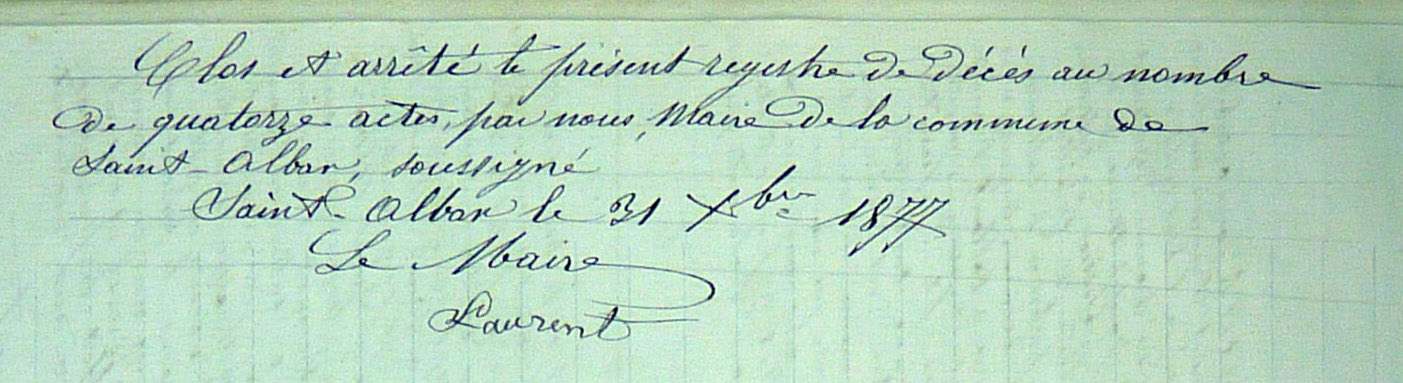 Clos et arrêté le présent registre de décés au nombre
de quatorze actes, par nous, Maire de la commune de
Saint-Alban, soussigné
Saint-Alban le 31 Xbre 1877
Le Maire
Laurent